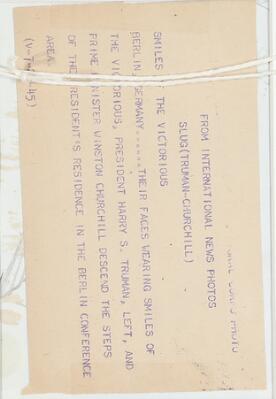 PHOTO
FROM INTERNATIONAL NEWS PHOTOS
SLUG(TRUMAN-CHURCHILL)
SMILES THE VICTORIOUS
BERLIN, GERMANY......THEIR FACES WEARING SMILES OF
THE VICTORIOUS, PRESIDENT HARRY S. TRUMAN, LEFT, AND
PRIME MINISTER WINSTON CHURCHILL DESCEND THE STEPS
OF THE PRESIDENT'S RESIDENCE IN THE BERLIN CONFERENCE
AREA.